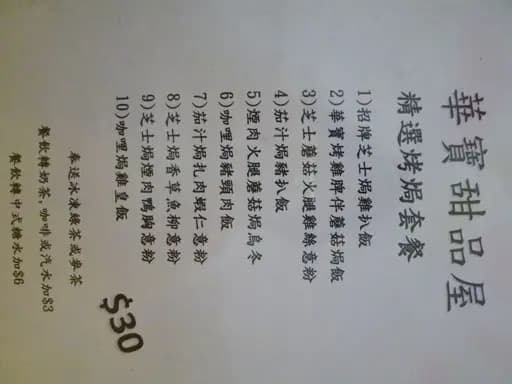 華寶甜品屋
精選烤焗套餐
1)招牌芝士焗雞扒飯
2)華寶烤雞脾伴蘑菇焗飯
3)芝士蘑菇火腿雞絲意粉
4)茄汁焗豬扒飯
5)煙肉火腿蘑菇焗烏冬
6)咖哩焗豬頸肉飯
7)茄汁焗扎肉蝦仁意粉
8)芝士焗香草魚柳意粉
9)芝士焗煙肉鴨胸意粉
10)咖哩焗雞皇飯
$30
奉送冰凍綠茶或參茶
餐飲轉奶茶,咖啡或汽水加$3
餐飲轉中式糖水加$6